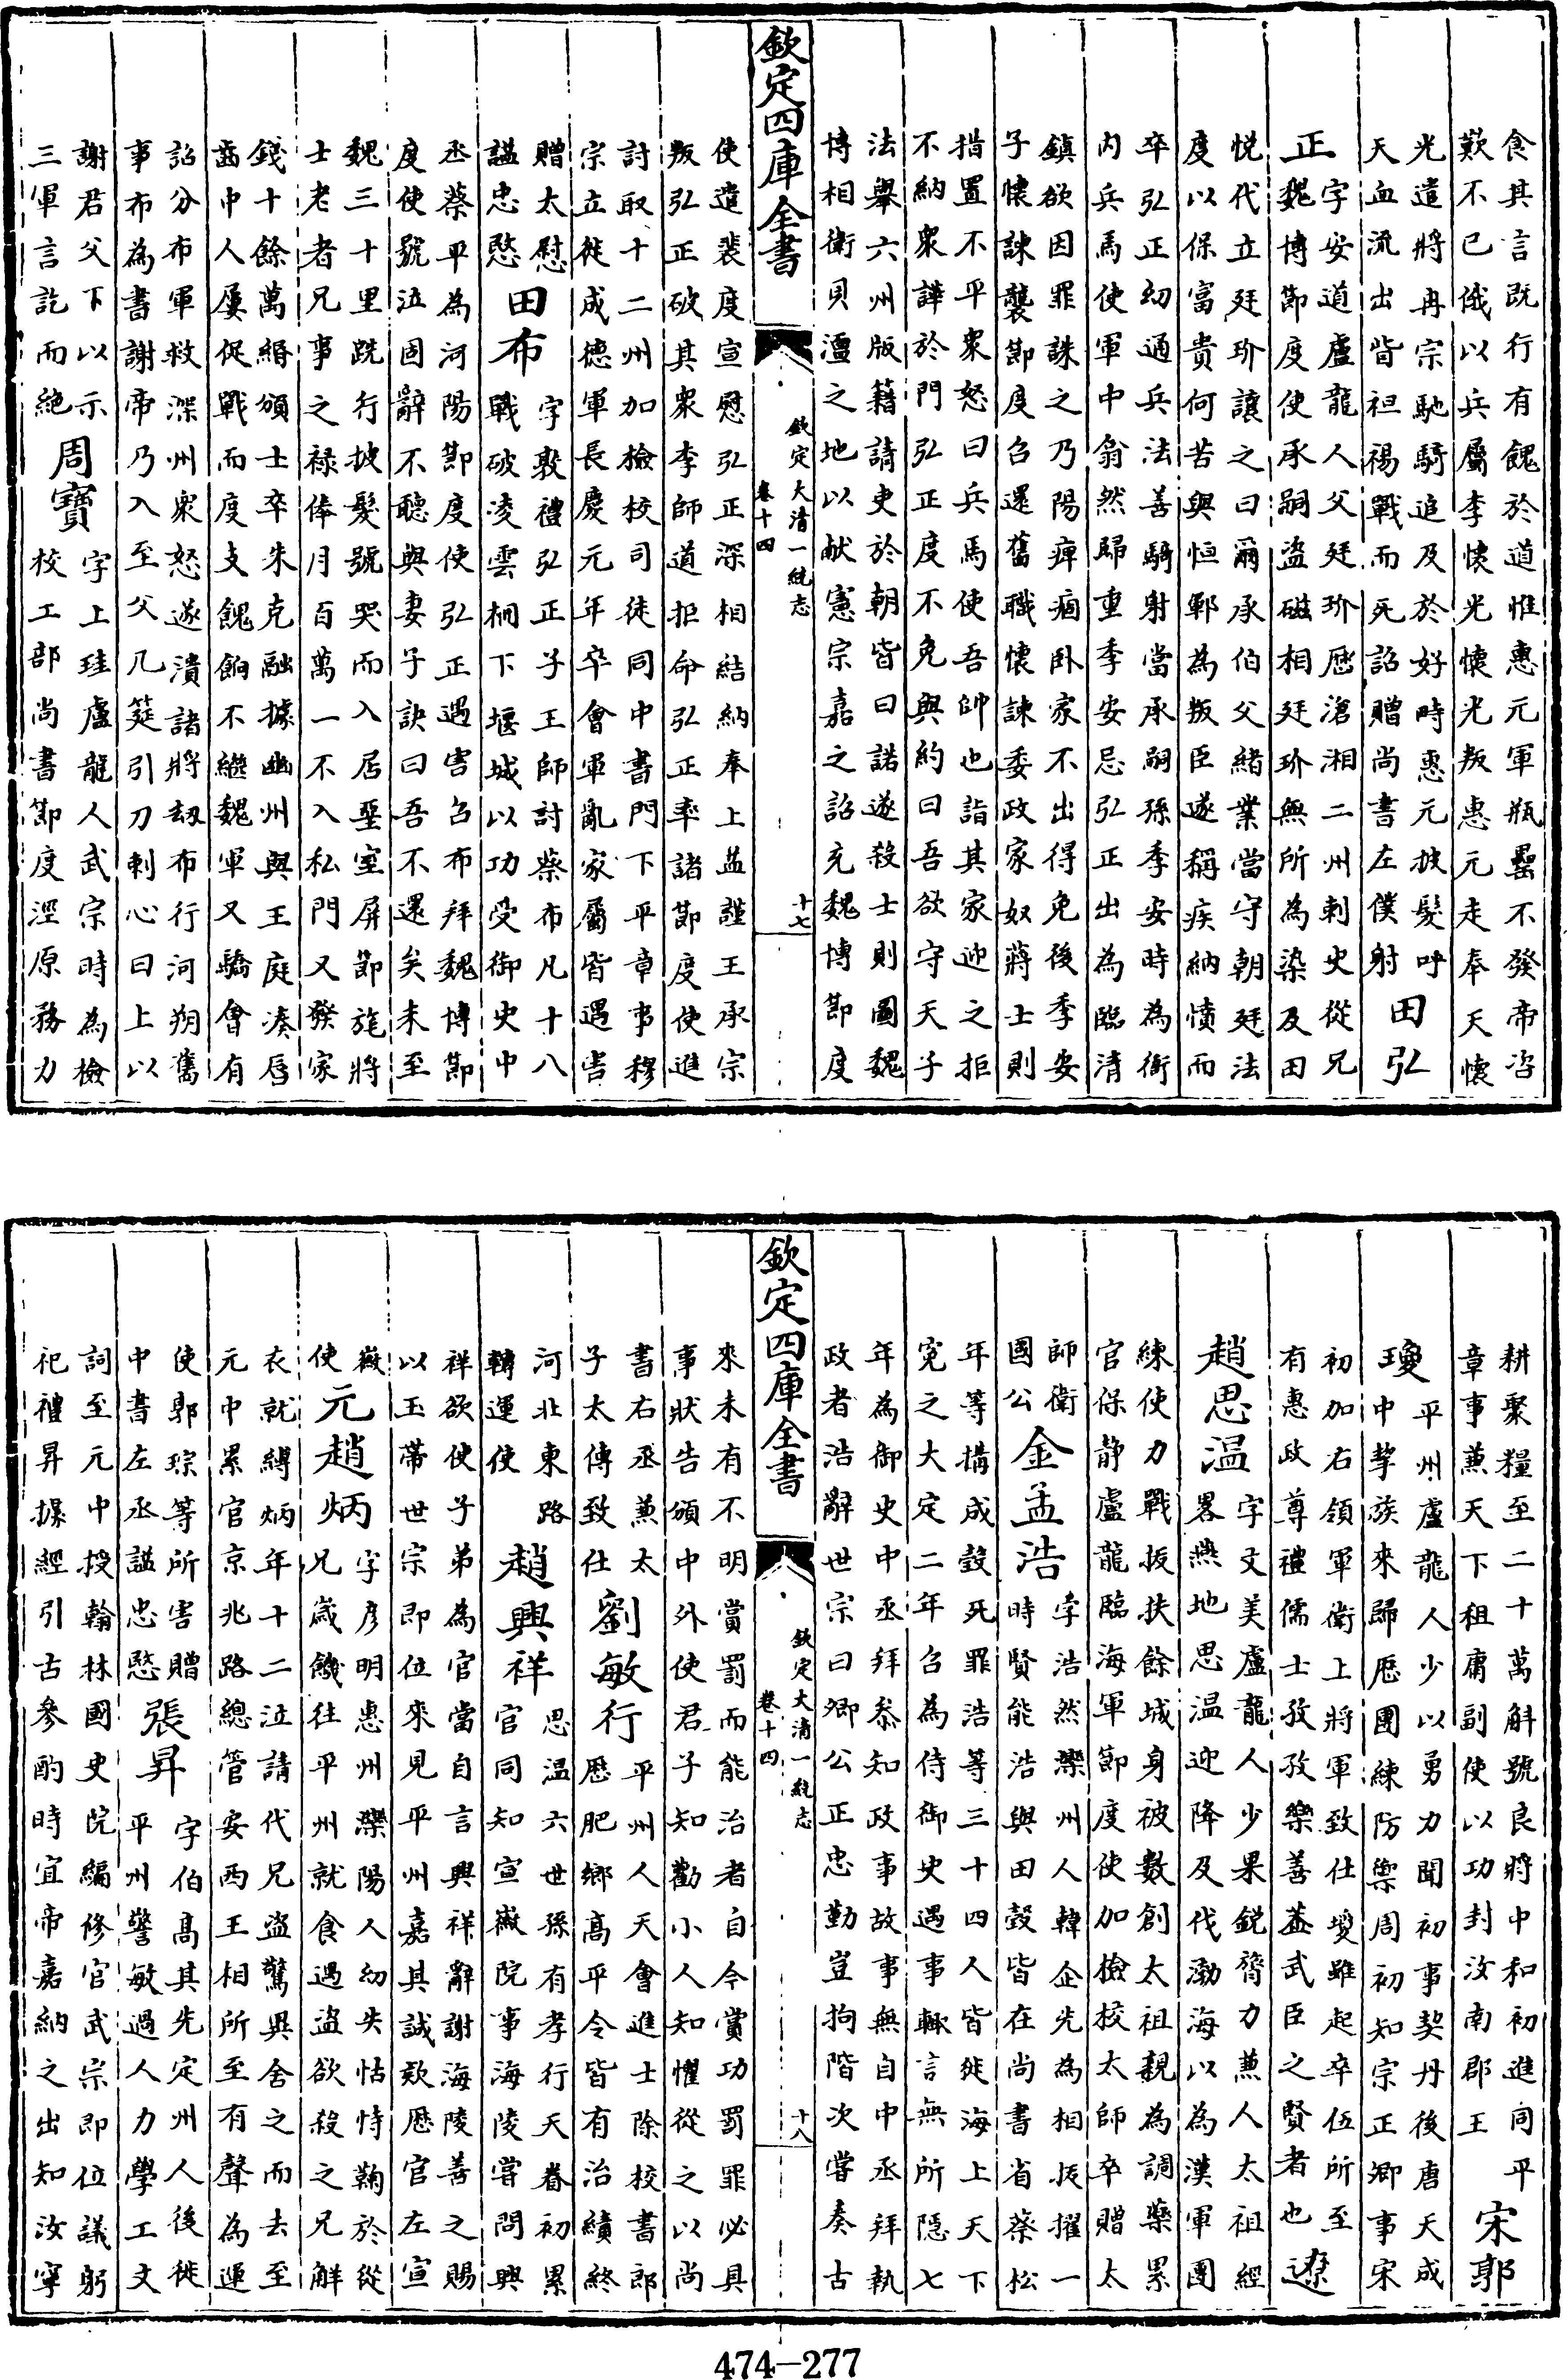 食其言既行有餽於道惟惠元軍瓶罍不發帝咨
歎不已俄以兵屬李懷光懷光叛惠元走奉天懷
光遣將冉宗馳騎追及於好時惠元披髮呼
天血流出眥袒裼戰而死詔贈尚書左僕射
田弘
正
字安道盧龍人父廷玠歷滄湘二州刺史從兄
魏博節度使承嗣盜磁相廷玠無所為染及田
悦代立廷玠讓之曰爾承伯父緒業當守朝廷法
度以保富貴何苦與恒鄆為叛臣遂稱疾納憤而
卒弘正幼通兵法善騎射當承嗣孫季安時為衙
内兵馬使軍中翕然歸重季安忌弘正出為臨清
鎮欲因罪誅之乃陽痺痼卧家不出得免後季安
子懷諫襲節度召還舊職懷諫委政家奴蔣士則
措置不平衆怒曰兵馬使吾帥也詣其家迎之拒
不納衆譁於門弘正度不免與約曰吾欲守天子
法舉六州版籍請吏於朝皆曰諾遂殺士則圖魏
博相衛貝澶之地以献憲宗嘉之詔充魏博節度
欽定四庫全書
欽定大清一統志
卷十四
十七
使遣裴度宣慰弘正深相結納奉上益謹王承宗
叛弘正破其衆李師道拒命弘正率諸節度使進
討取十二州加檢校司徒同中書門下平章事穆
宗立徙成德軍長慶元年卒會軍亂家屬皆遇害
贈太慰
謚忠愍
田布
字敦禮弘正子王師討蔡布凡十八
戰破凌雲柵下堰城以功受御史中
丞蔡平為河陽節度使弘正遇害召布拜魏博節
度使號泣固辭不聽與妻子訣曰吾不還矣未至
魏三十里跣行披髮號哭而入居堊室屏節旄將
士老者兄事之禄俸月百萬一不入私門又發家
錢十餘萬緡頒士卒朱克融據幽州與王庭湊唇
齒中人屢促戰而度支餽餉不繼魏軍又驕會有
詔分布軍救深州衆怒遂潰諸將刼布行河朔舊
事布為書謝帝乃入至父几筵引刀剌心曰上以
謝君父下以示
三軍言訖而絶
周寶
字上珪盧龍人武宗時為檢
校工部尚書節度涇原務力
耕聚糧至二十萬斛號良將中和初進同平
章事兼天下租庸副使以功封汝南郡王
宋郭
瓊
平州盧龍人少以勇力聞初事契丹後唐天成
中挈族來歸歷團練防禦周初知宗正卿事宋
初加右領軍衛上將軍致仕瓊雖起卒伍所至
有惠政尊禮儒士孜孜樂善葢武臣之賢者也
遼
趙思温
字文美盧龍人少果鋭膂力兼人太祖經
畧燕地思温迎降及伐渤海以為漢軍團
練使力戰拔扶餘城身被數創太祖親為調藥累
官保静盧龍臨海軍節度使加檢校太師卒贈太
師衛
國公
金孟浩
字浩然灤州人韓企先為相拔擢一
時賢能浩與田瑴皆在尚書省蔡松
年等搆成瑴死罪浩等三十四人皆徙海上天下
寃之大定二年召為侍御史遇事輒言無所隱七
年為御史中丞拜叅知政事故事無自中丞拜執
政者浩辭世宗曰卿公正忠勤豈拘階次嘗奏古
欽定四庫全書
欽定大清一統志
卷十四
十八
來未有不明賞罰而能治者自今賞功罰罪必具
事狀告頒中外使君子知勸小人知懼從之以尚
書右丞兼太
子太傅致仕
劉敏行
平州人天會進士除校書郎
歷肥鄉高平令皆有治績終
河北東路
轉運使
趙興祥
思温六世孫有孝行天眷初累
官同知宣徽院事海陵嘗問興
祥欲使子弟為官當自言興祥辭謝海陵善之賜
以玉帶世宗即位來見平州嘉其誠欵歷官左宣
徽
使
元趙炳
字彦明惠州灤陽人幼失怙恃鞠於從
兄歳饑往平州就食遇盜欲殺之兄解
衣就縛炳年十二泣請代兄盜驚異舍之而去至
元中累官京兆路總管安西王相所至有聲為運
使郭琮等所害贈
中書左丞謚忠愍
張昇
字伯高其先定州人後徙
平州警敏過人力學工文
詞至元中授翰林國史院編修官武宗即位議躬
祀禮昇據經引古參酌時宜帝嘉納之出知汝寧
474-277